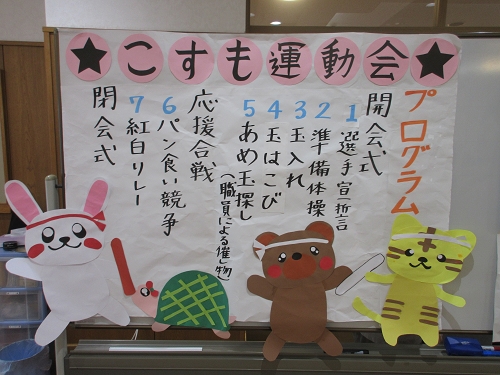 ★こすも運動会★
プログラム
開会式
1 選手宣誓
2 準備体操
3 玉入れ
4 玉はこび
5 あめ玉探し
応援合戦
(職員による催し物)
6 パン食い競争
7 紅白リレー
閉会式